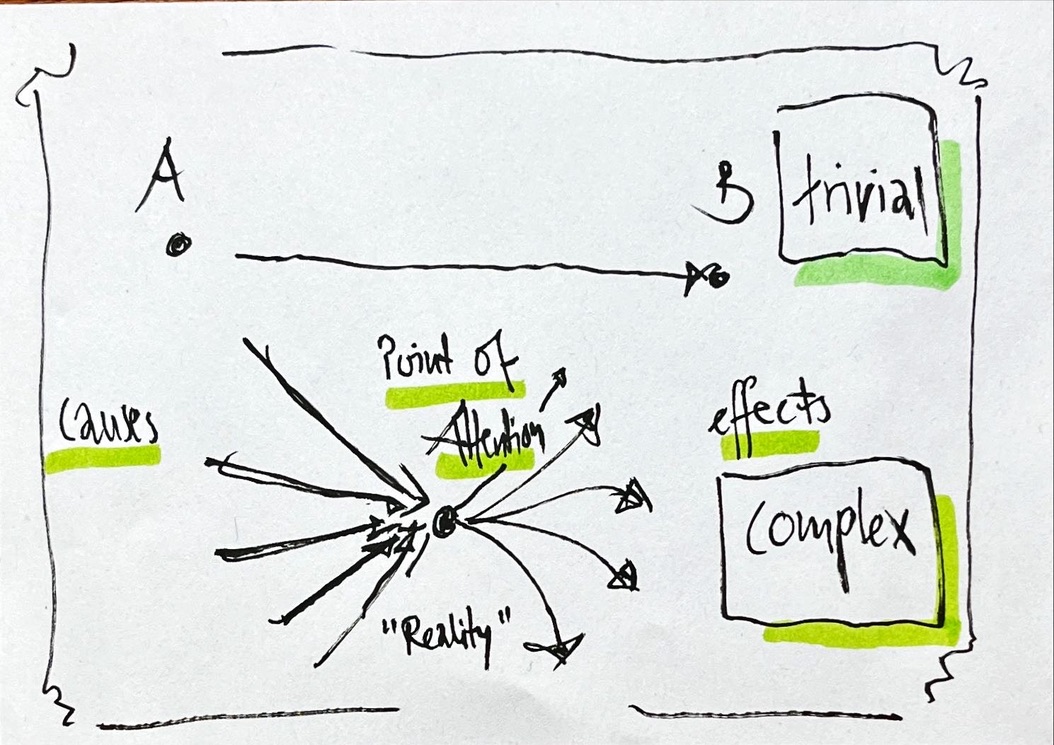 A
B
trivial
Point of
Attention
causes
effects
complex
"Reality"